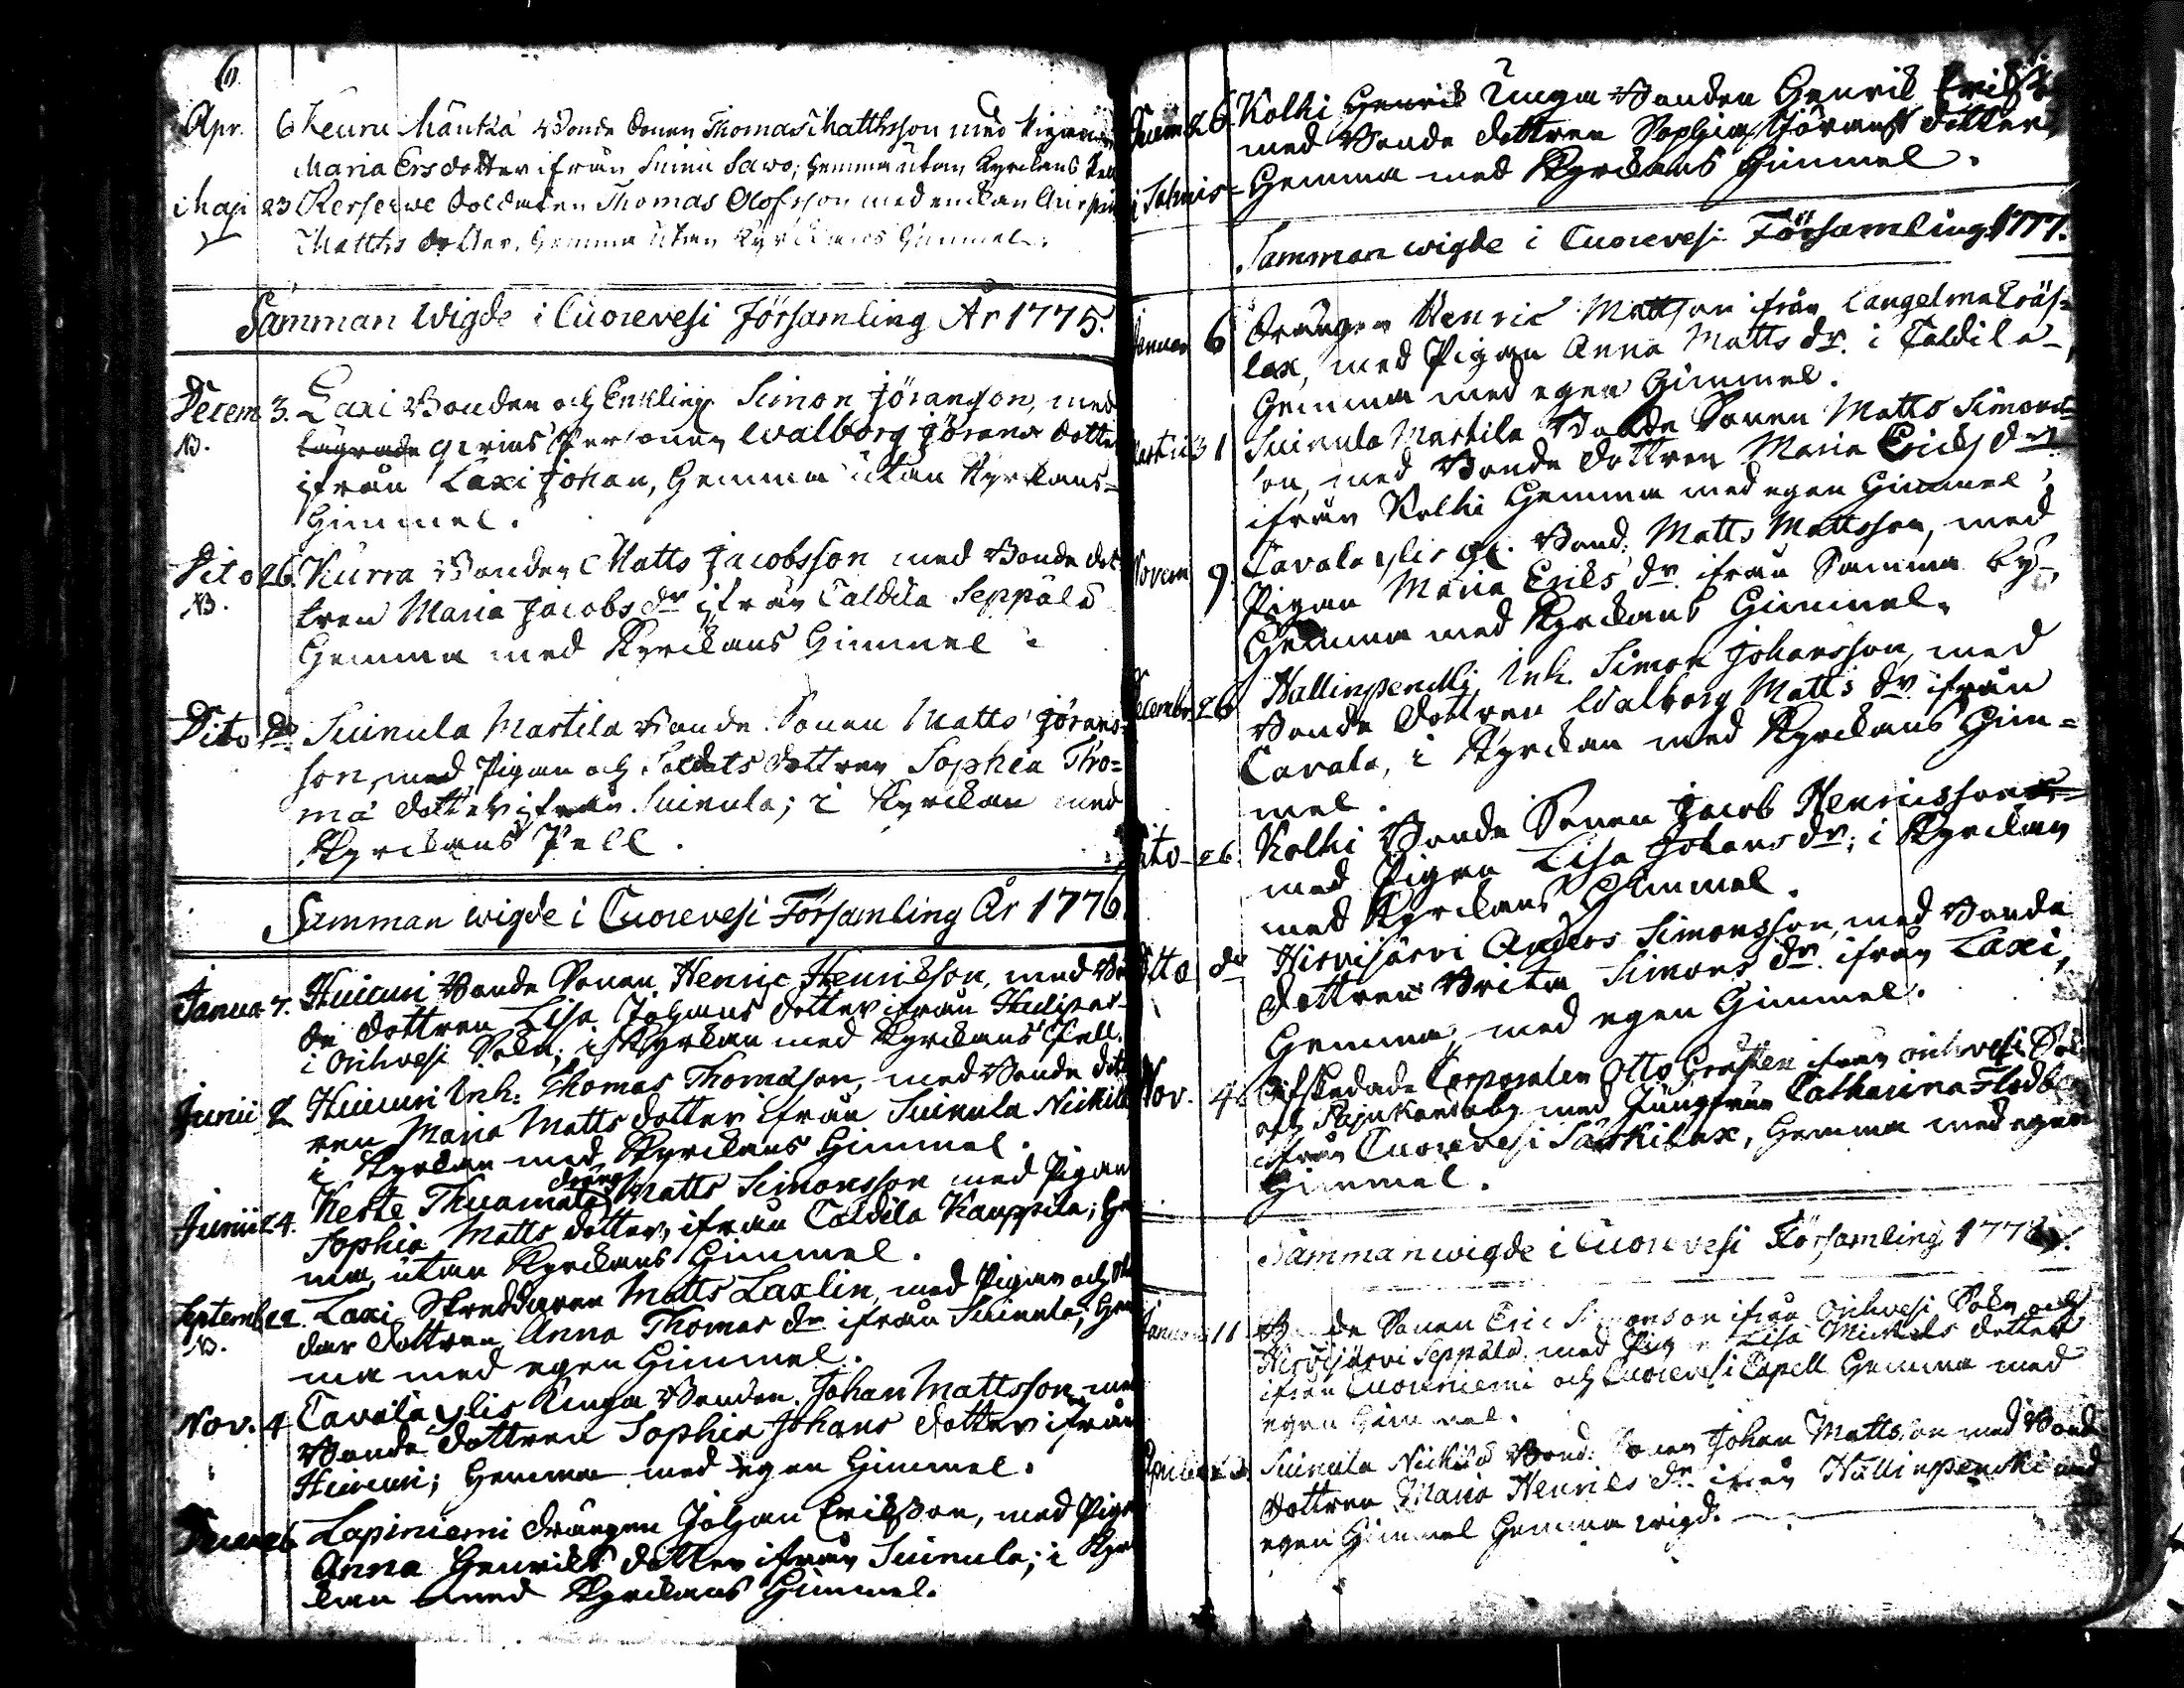 6.
Apr. 6 Keuru Mänttä Bonde Sonen Thomas Matthsson med Pigan
Maria Ersdotter ifrån Suinu Sawo; Hemma utan Kyrckans
Maji 23 Kerferwe Soldaten Thomas Olofsson med enckan
Matths dotter. Hemma utan Kyrckans Himmel.
Samman Wigde i Cuorevesi Församling År 1775.
Decem 3. Laxi Bonden och Enkling Simon Jöransson, med
NB. lägrade qvins Personen Walborg Jörans dotter
ifrån Laxi Johan, Hemma utan Kyrckans=
Himmel.
Dito 26. Kurra Bonden Matts Jacobsson med Bonde dot
NB. tren Maria Jacobs dr ifrån Taldila Seppälä
Hemma med Kyrckans Himmel.
Dito do Suinula Martila Bonde Sonen Matts Jörans=
son, med Pigan och Soldats dottren Sophia Tho=
mä dotter ifrån Suinula; i Kyrckan med
Kyrckans Pell.
Samman wigde i Cuorevesi Församling År 1776
Janua 7. Huicuri Bonde Sonen Henric Henricsson, med Bo
de dottren Lisa Johans dotter ifrån
i Orihvesi Sokn; i Kyrckan med Kyrckans Pell.
Junii 2 Huicuri Inh: Thomas Thomasson, med Bonde dot
ren Maria Matts dotter ifrån Suinula Nickilä
i Kyrckan med Kyrckans Himmel.
Junii 24. Kerte Thuomala dräng Matts Simonsson med Pigan
Sophia Matts dotter, ifrån Taldila Kauppila; He
ma, utan Kyrckans Himmel.
Septemb 22. Laxi Skreddaren Matts Laxlin, med Pigan och
NB. dar dottren Anna Thomas dr ifrån Suinula; Hem
ma med egen Himmel.
Nov. 4 Tavala ylis Unga Bonden Johan Mattsson med
Bonde dottren Sophia Johans dotter ifrån
Huicuri; Hemma med egen Himmel.
26 Lapiniemi drängen Johan Ericsson, med Pigan
Anna Henrics dotter ifrån Suinula; i Kyr
kan med Kyrckans Himmel.
7.
Decem 26 Kolhi Henric Unga Bonden Henric Erics
med Bonde dottren Sophia Jörans dotter,
Hemma med Kyrckans Himmel.
Samman wigde i Cuorevesi Församling 1777.
Januar 6 Drängen Henric Mattson ifrån Längelmä Eräs=
lax, med Pigan Anna Matts dr. i Taldila,
Hemma med egen Himmel.
Martii 31 Suinula Martila Bonde Sonen Matts Simons=
son, med Bonde dottren Maria Erics dr
ifrån Kolhi Hemma med egen Himmel
Novem 9. Tavala ylis gl. Bond: Matts Mattsson, med
Pigan Maria Erics dr ifrån Samma by,
Hemma med Kyrckans Himmel.
Decembr 26 Hallinpenckki Inh. Simon Johansson, med
Bonde dottren Walborg Matts dr ifrån
Tavala, i Kyrckan med Kyrckans Him=
mel.
Dito 26. Kolhi Bonde Sonen Jacob Henricsson
med Pigan Lisa Johans dr; i Kyrckan
med Kyrckans Himmel.
Ditto do Hirvijärvi Anders Simonsson, med Bonde
dottren Brita Simons dr ifrån Laxi,
Hemma, med egen Himmel.
Nov. 4 Afskedade Corporalen Otto Graftén ifrån Orihvesi Sokn
och med Jungfrun Catharina Flodberg
ifrån Cuorevesi Särkilax, Hemma med egen
Himmel.
Samman wigde i Cuorevesi Församling 1778.
Januar 11 Bonde Sonen Eric Simonson ifrån Orihvesi Sokn och
Hirvijärvi Seppälä med Pigan Lisa Michels dotter
ifrån Cuoreniemi och Cuorevesi Capell Hemma med
egen Himmel.
Aprilis Suinula Nickilä Bond: Sonen Johan Mattsson med Bonde
dottren Maria Henrics dr ifrån Hallinpenckki med
egen Himmel Hemma wigd.